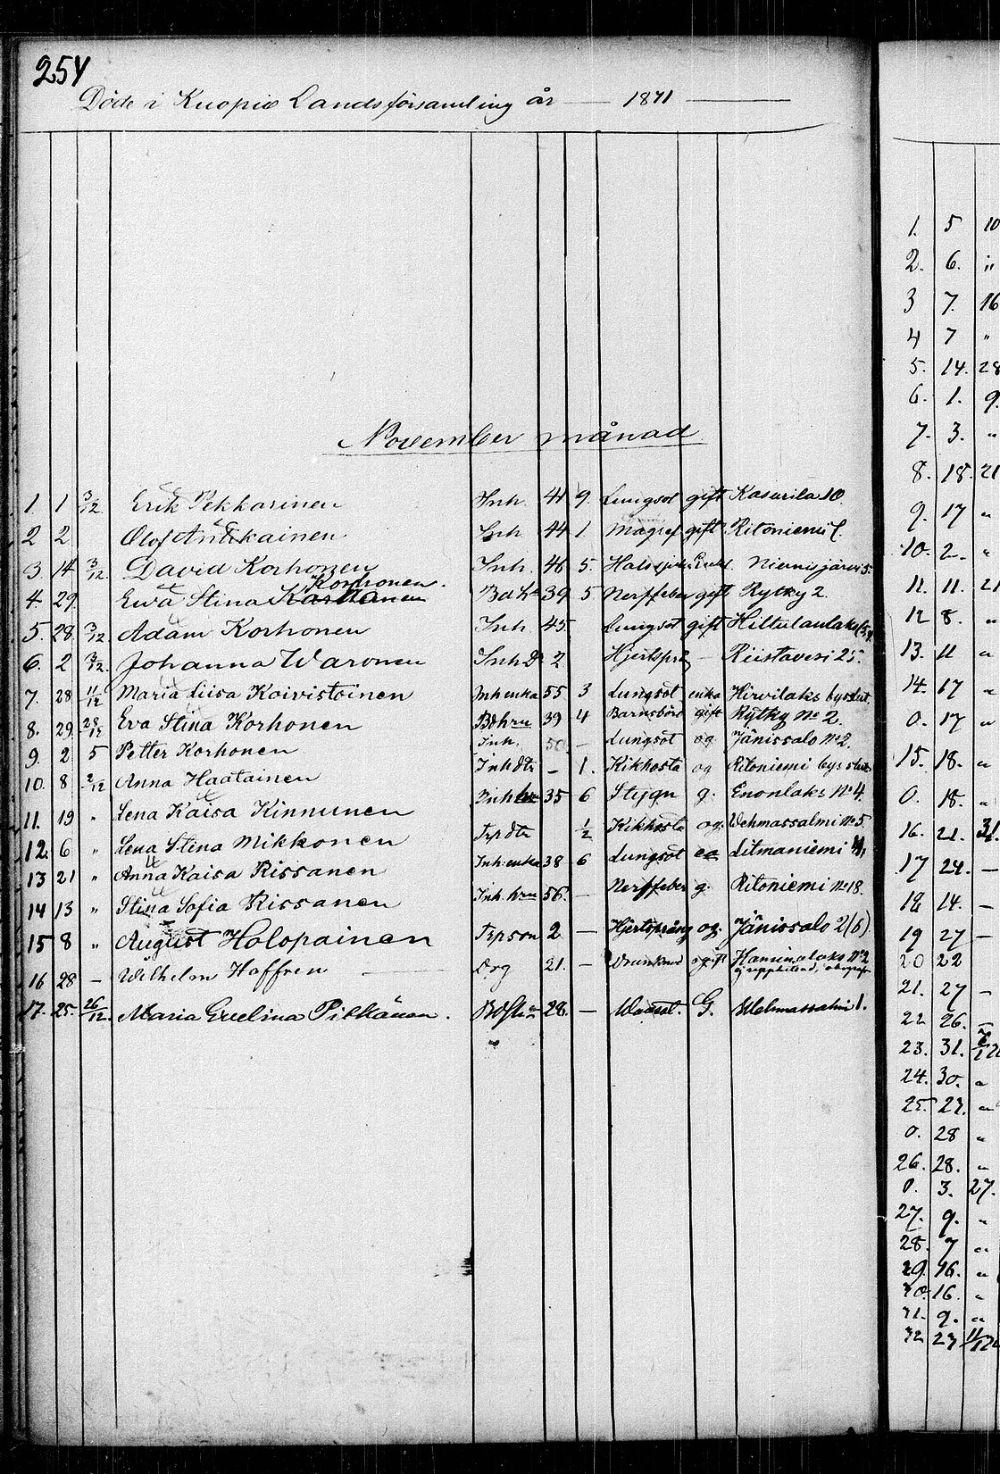 254
Döde i Kuopio Landsförsamling år — 1871 —
November månad
1 1 3/12 Erik Pekkarinen Inh. 41 9 Lungsot gift Kasurila 10
2 2 Olof Antikainen Inh 44 1 gift Ritoniemi
3. 14 3/12 David Korhonen Inh. 46 5. Niemisjärvi 5.
Korhonen.
4. 29. Ewa Stina 39 5 Nerffeber gift Rytky 2.
5. 28. 3/12 Adam Korhonen Inh 45 Lungsot gift
6. 2 3/12 Johanna Waronen Inh D. 2 Hjertspr — Riistavesi 25.
7. 28 11/12 Maria Liisa Koivistoinen Inh enka 55 3 Lungsot enka Hirvilaks
8. 29 Eva Stina Korhonen 39 4 Barnsbörd gift Rytky No 2.
9 2 5 Petter Korhonen Inh. 50 — Lungsot og Jänissalo No 2.
10. 8 2/12 Anna Haatainen Inh dtr — 1. Kikhosta og Ritoniemi
11. 19 " Lena Kaisa Kinnunen Inh 35 6 Stygn g. Enonlaks No 4.
12. 6 " Lena Stina Mikkonen dtr 1/2 Kikhosta og. Vehmassalmi No 5
13 21 " Anna Kaisa Rissanen Inh enka 38 6 Lungsot ea Litmaniemi
14 13 " Stina Sofia Rissanen Inh. hru 56. — Nerffeber g. Ritoniemi No 18.
15 8 " August Holopainen son 2 — Hjertsprång og. Jänissalo 2(6)
16 28 — Wilhelm Haffren Drg 21. — ogift No 2
17. 25. 26/12. Maria Evelina Pitkänen. 28. — G. Wehmassalmi 1.
1. 5 10
2. 6. "
3 7. 16
4 7 "
5. 14. 28
6. 1. 9.
7. 3. "
8. 18. 21
9. 17 "
10. 2. "
11. 11. 21
12 8. "
13. 11 "
14. 17 "
0. 17 "
15. 18. "
0. 18. "
16. 21. 31.
17 24. —
18 14. —
19 27 —
20 22
21. 27 —
22 26. —
23. 31.
24. 30. "
25. 27. "
0. 28 "
26. 28. "
0. 3. 27.
27. 9. "
28. 7 "
29. 16. "
30. 16. "
31. 9. "
32 23